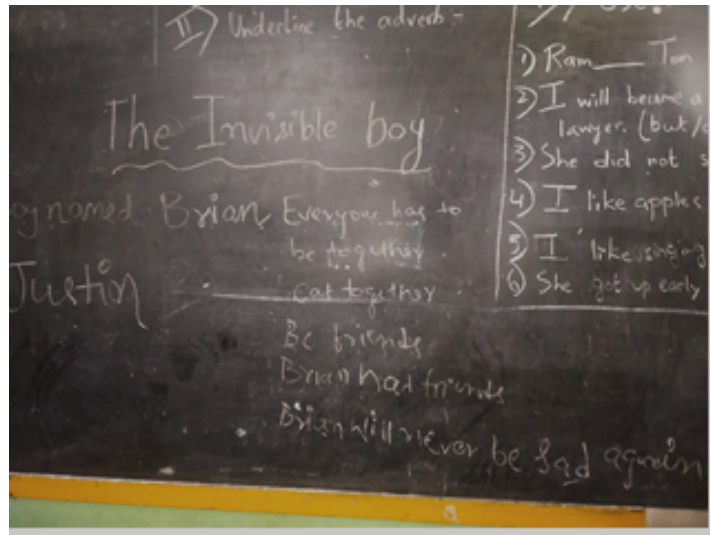 II) Underline the adverb:-
The Invisible boy
oy named Brian Everyone has to
be together
Justin
eat together
Be friends
Brian had friends
Brian will never be sad again
1) Ram___ Tom
2) I will became a
lawyer. (but/
3) She did not s
4) I like apples
5) I like singing
6) She got up early